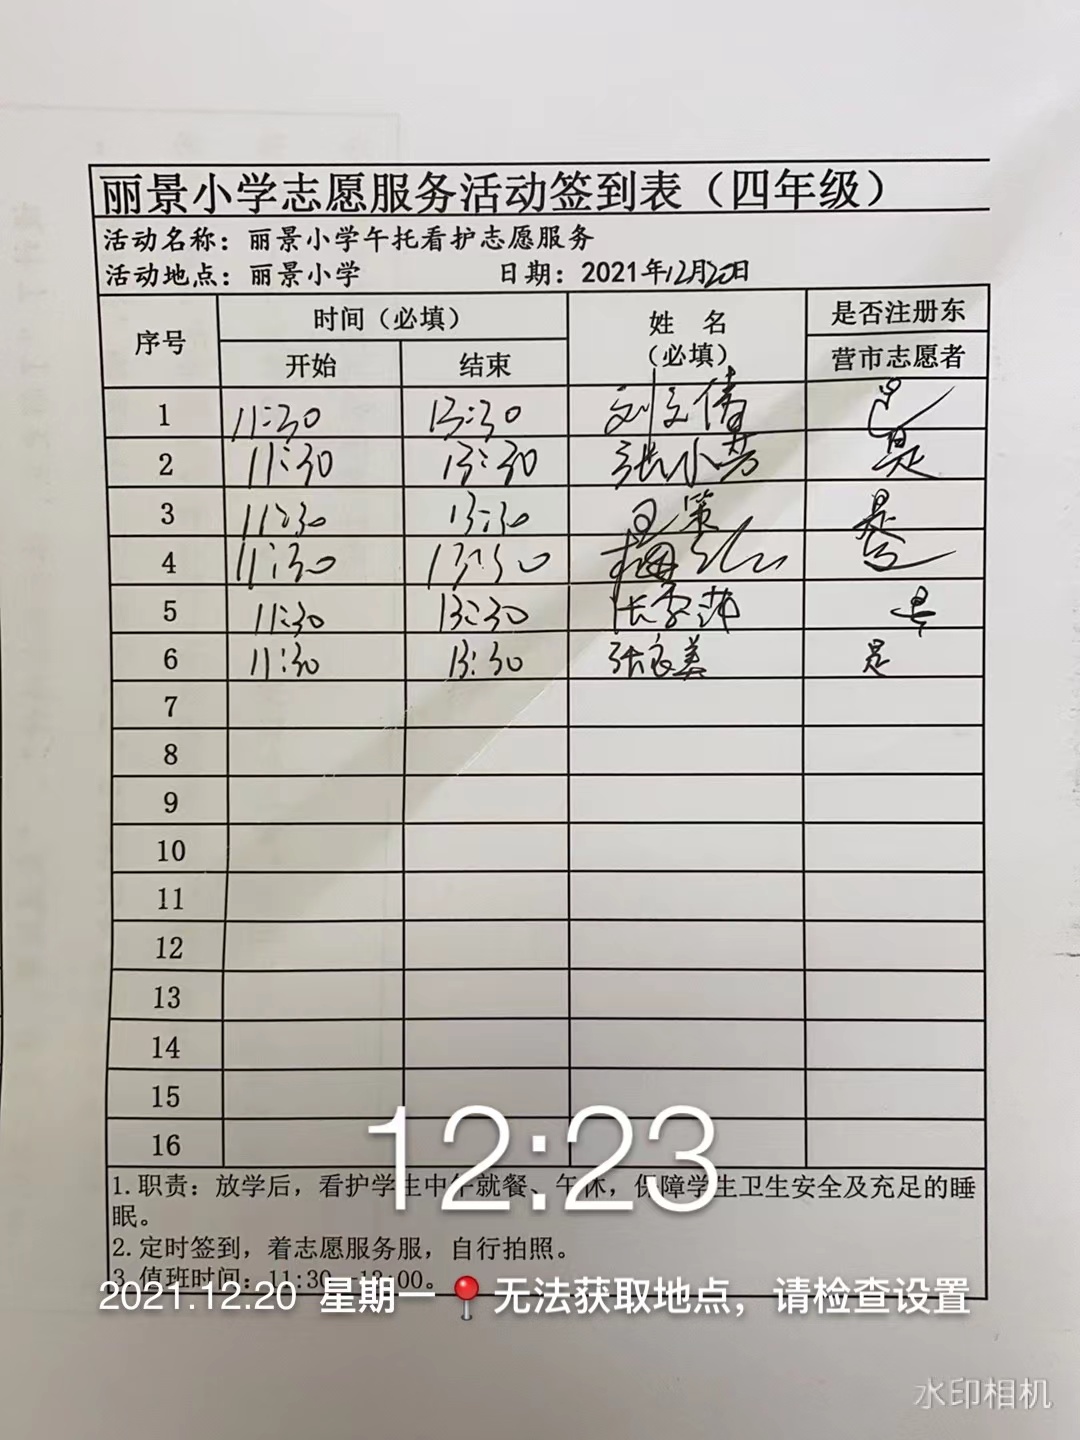 丽景小学志愿服务活动签到表（四年级）
活动名称：丽景小学午托看护志愿服务
活动地点：丽景小学 日期：2021年12月20日
序号 时间（必填） 姓 名（必填） 是否注册东营市志愿者
开始 结束
1 11:30 13:30 刘文倩 是
2 11:30 13:30 张小芳 是
3 11:30 13:30 是
4 11:30 13:30 是
5 11:30 13:30 是
6 11:30 13:30 张良美 是
7
8
9
10
11
12
13
14
15
16
12:23
1.职责：放学后，看护学生中午就餐、午休，保障学生卫生安全及充足的睡
眠。
2.定时签到，着志愿服务服，自行拍照。
3.值班时间：11:30
2021.12.20 星期一 无法获取地点，请检查设置
水印相机